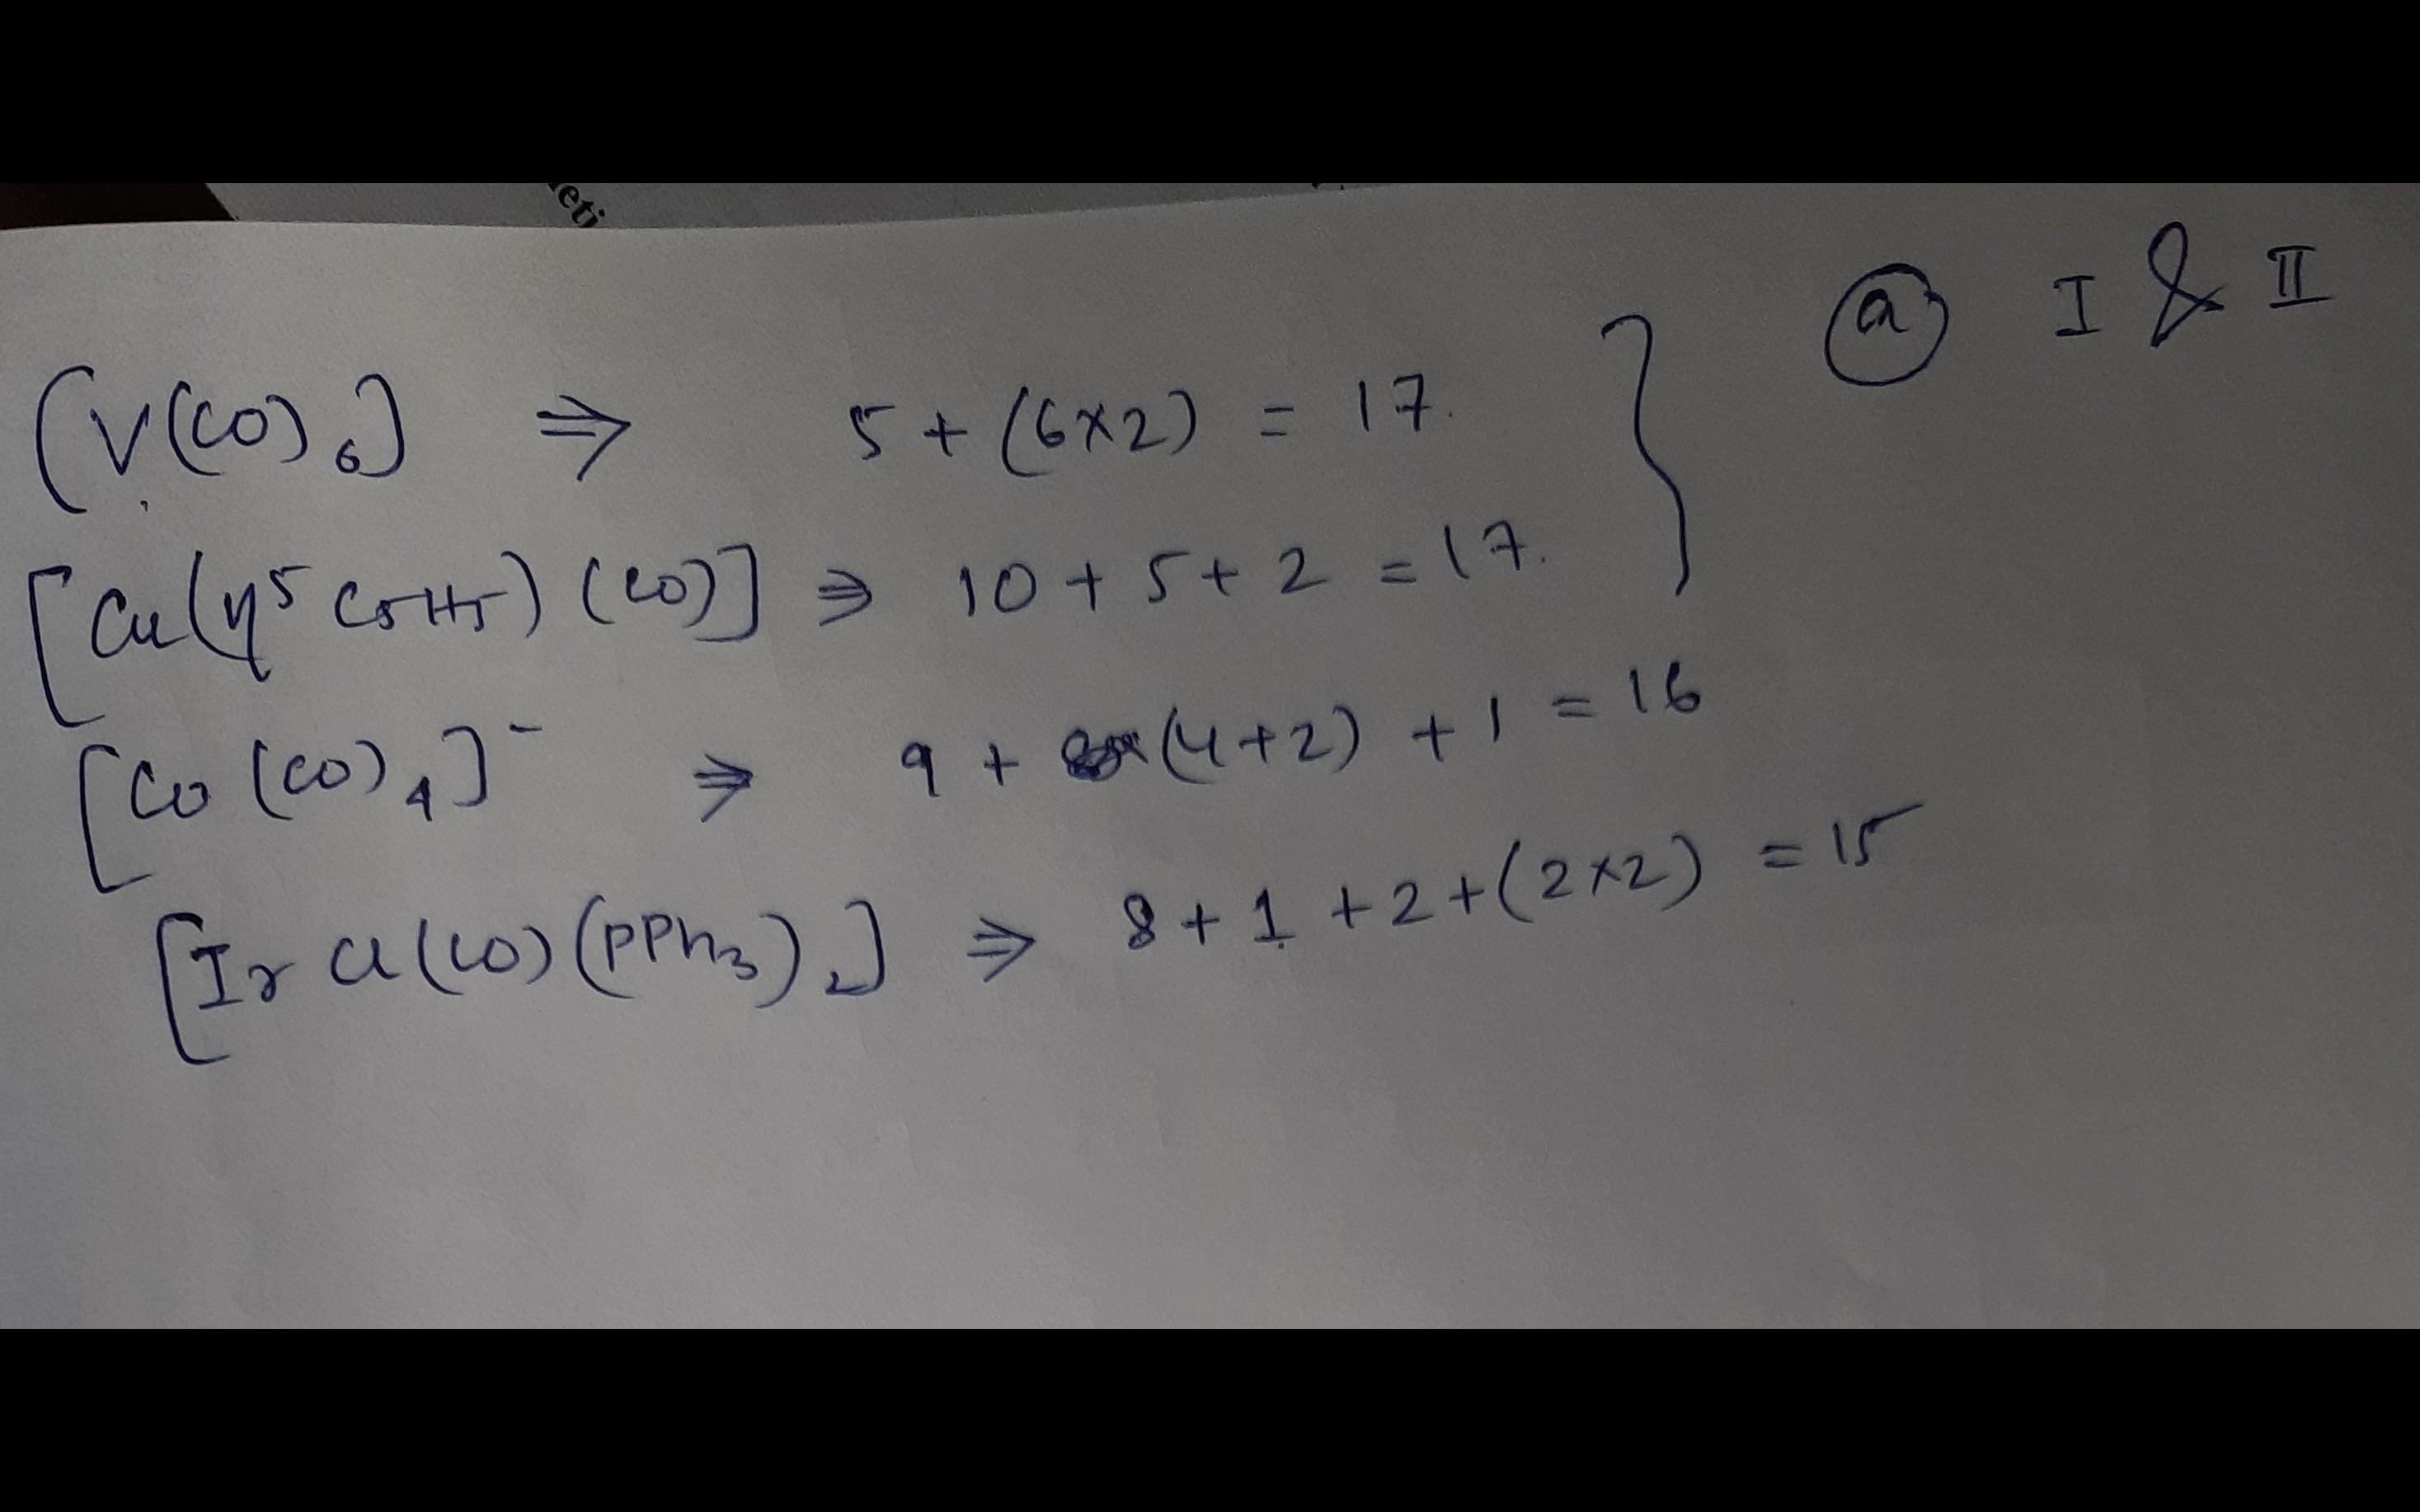 eti
ⓐ I & II
[V(CO)₆] ⇒ 5 + (6×2) = 17.
[Cu(η⁵ C₅H₅) (CO)] ⇒ 10 + 5 + 2 = 17.
[Co (CO)₄]⁻ ⇒ 9 + (4+2) + 1 = 16
[Ir Cl (CO) (PPh₃)₂] ⇒ 8 + 1 + 2 + (2×2) = 15